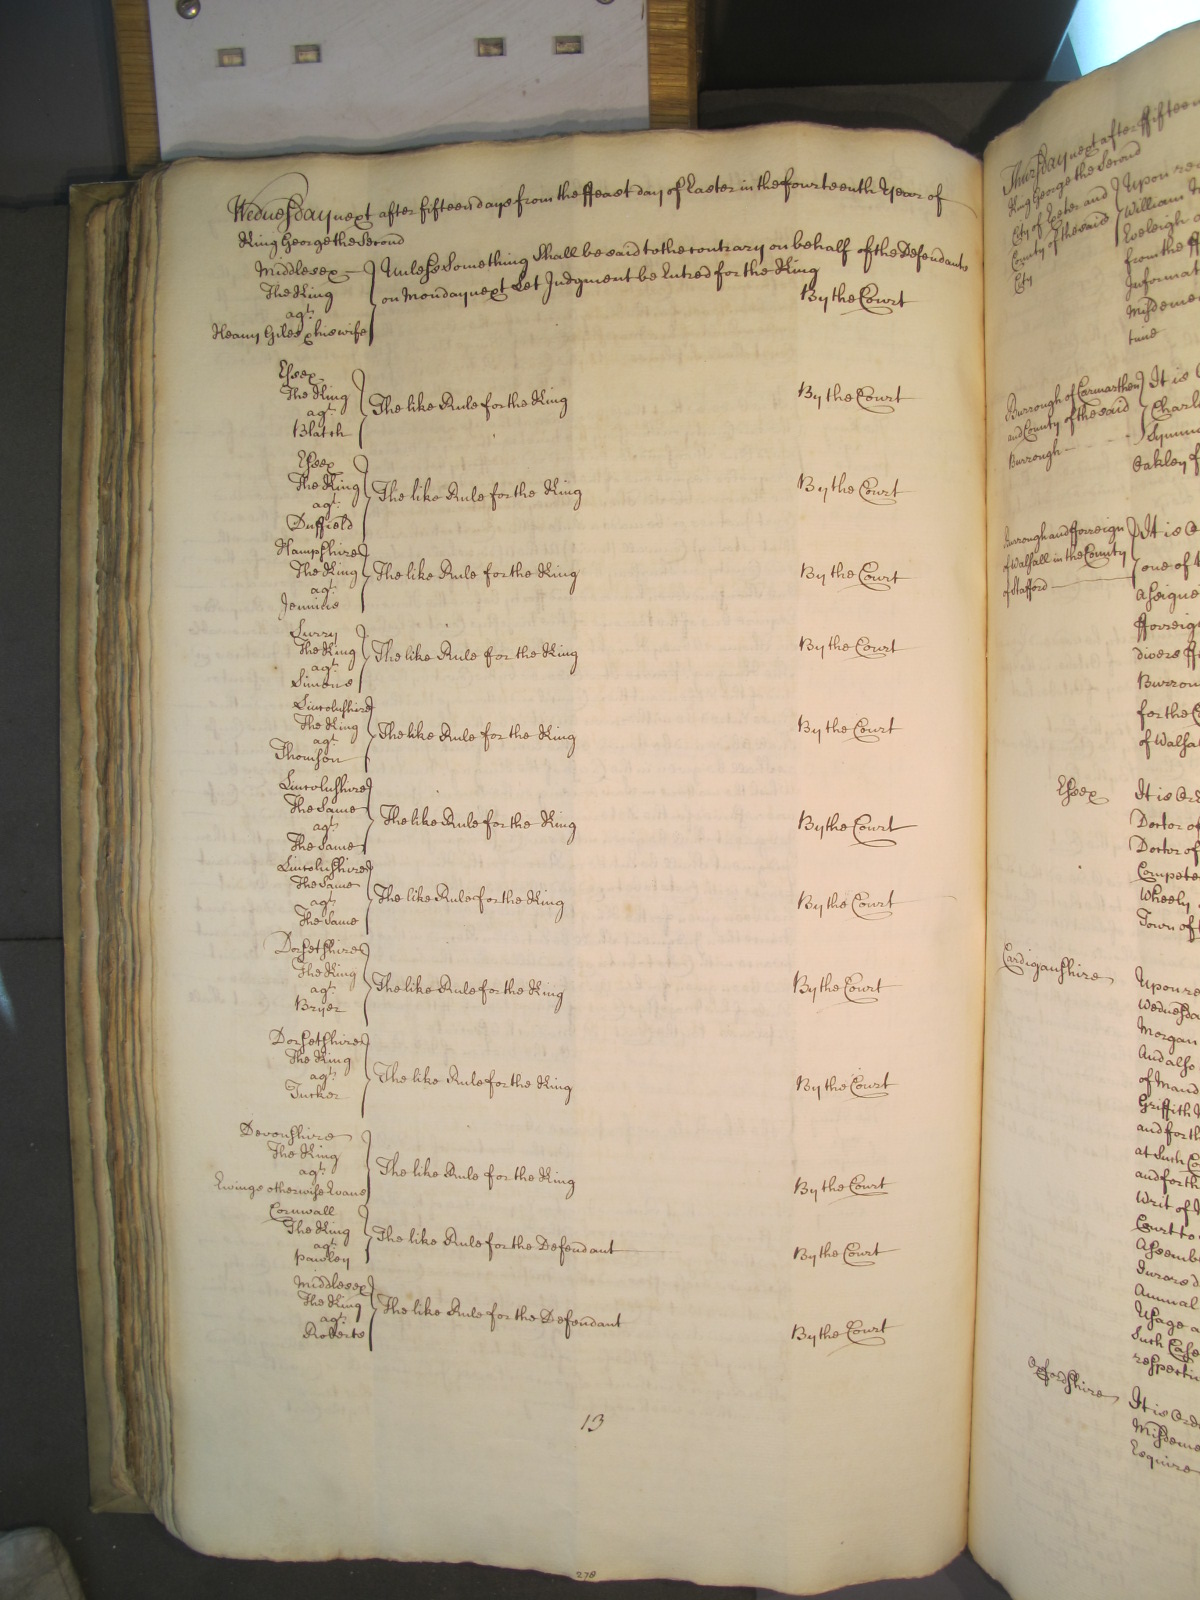 Wednesday next after fifteen days from the ffeast day of Easter in the fourteenth Year of
King George the Second
Middlesex
The King
agt.
Heany Giles & his wife
Unless Something Shall be said to the contrary on behalf of the Defendants
on Monday next Let Judgment be Entred for the King
By the Court
Essex
The King
agt.
Blatch
The like Rule for the King
By the Court
Essex
The King
agt.
Duffield
The like Rule for the King
By the Court
Hampshire
The King
agt.
The like Rule for the King
By the Court
Surry
The King
agt.
Simons
The like Rule for the King
By the Court
Lincolnshire
The King
agt.
Thomson
The like Rule for the King
By the Court
Lincolnshire
The Same
agt.
The Same
The like Rule for the King
By the Court
Lincolnshire
The Same
agt.
The Same
The like Rule for the King
By the Court
Dorsetshire
The King
agt.
Bryer
The like Rule for the King
By the Court
Dorsetshire
The King
agt.
Tucker
The like Rule for the King
By the Court
Devonshire
The King
agt.
Ewings otherwise Evans
The like Rule for the King
By the Court
Cornwall
The King
agt.
Pawley
The like Rule for the Defendant
By the Court
Middlesex
The King
agt.
Roberts
The like Rule for the Defendant
By the Court
13
278
Thursday next after fifteen
King George the Second
City of Exeter and
County of the said
City
Upon rea
William
Eveleigh
from the
Informat
Misdemea
time
Burrough of Carmarthen
and County of the said
Burrough
It is
Charl
Symm
Oakley
Burrough and fforreign
of Walsall in the County
of Stafford
It is O
one of
Assigne
fforreig
divers
Burrou
for the
of Walsa
Essex
It is Ord
Doctor of
Doctor of
Compete
Wheely
Town of
Cardiganshire
Upon re
Wednesda
Morgan
And also
of Mand
Griffith
and forth
at Such Co
and forth
Writ of
Court to
Assemb
Jurors
Annual
Usage a
Such Case
respecti
Oxfordshire
It is Ord
Misdeme
Esquire